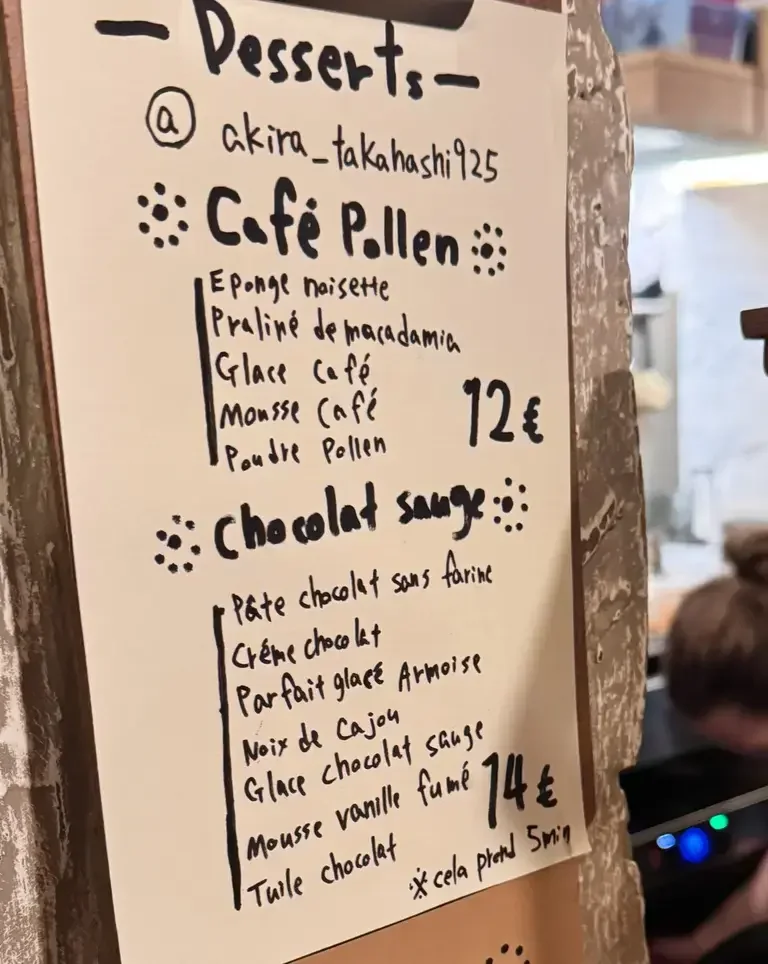 — Desserts —
@ akira_takahashi925
Café Pollen
Eponge noisette
Praliné de macadamia
Glace Café
Mousse Café
Poudre Pollen
12€
Chocolat sauge
Pâte chocolat sans farine
Crème chocolat
Parfait glacé Armoise
Noix de Cajou
Glace chocolat sauge
Mousse vanille fumé
Tuile chocolat
14€
※cela prend 5min